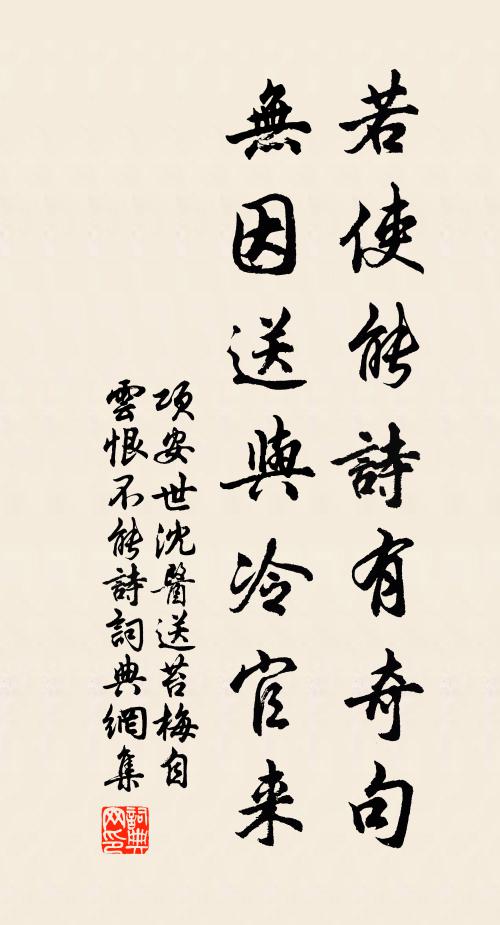 若使能詩有奇句
無因送與冷官来
項安世沈醫送苔梅自
雲恨不能詩詞典網集
詞典网印